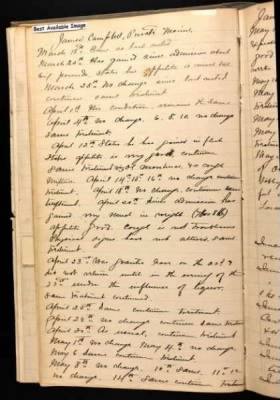 Best Available Image
James Campbell, Private Marine.
March 15th Case as last noted
March 20th Has gained since admission about
six pounds states his appetite is much
March 25th No change since last noted
continue same treatment
April 1st His condition remains the same
April 4th no change. 6. 8. 10 no change
same treatment.
April 12th States he has gained in flesh
States appetite is very good, continue
same treatment
April 14th 15th 16th no change continue
treatment. April 18th no change continue same
treatment. April 20th Since admission has
gained very much in weight
appetite good. Cough is not troublesome
Physical signs have not altered, same
treatment.
April 23rd Was granted leave on the
did not return until in the evening of the
23rd under the influence of liquor.
same treatment continued.
April 25th Same continue treatment.
April 28th no change continue same treatment
April 30th As usual, continue treatment
May 1st no change May 4th no change
May 6 same continue treatment
May 8th no change. 10th Same. 11th 12
no change. 14th Same continue treatment